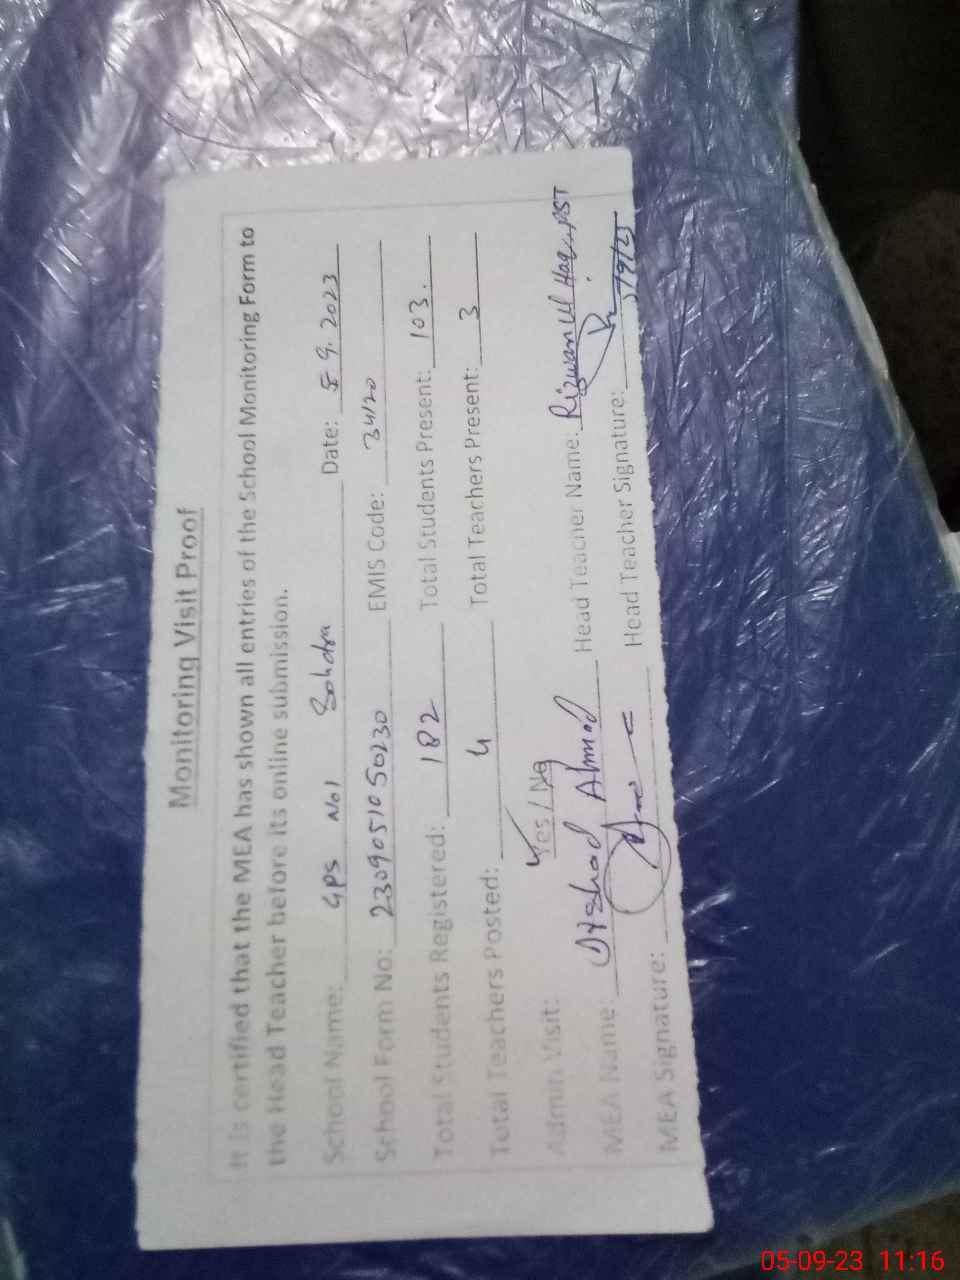 Monitoring Visit Proof
It is certified that the MEA has shown all entries of the School Monitoring Form to
the Head Teacher before its online submission.
School Name: GPS No1 Sohdra Date: 5 9.2023
School Form No: 23090510 50230 EMIS Code: 34120
Total Students Registered: 182 Total Students Present: 103.
Total Teachers Posted: 4 Total Teachers Present: 3
Admin Visit: Yes / No
MEA Name: Ahmed Head Teacher Name: Rizwan Ul Haq PST
MEA Signature: Head Teacher Signature:
05-09-23 11:16